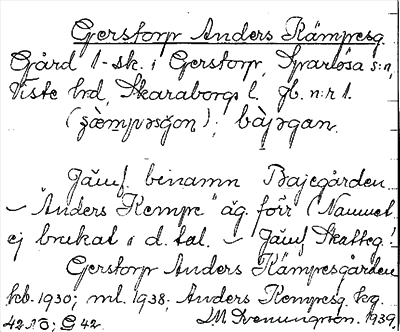 Gerstorp Anders Kämpesg.
Gård 1-sk. i Gerstorp, Sparlösa s:n,
Viste hrd, Skaraborgs l. jb. n:r 1.
bàjəgan.
Jämf. binamn Bajegården
– "Anders Kempe" äg. förr (Namnet
ej brukat i d. tal. – Jämf. Skatteg.!
Gerstorp Anders Kämpesgården
kb. 1930; ml. 1938. Anders Kempesg. kg.
1939.